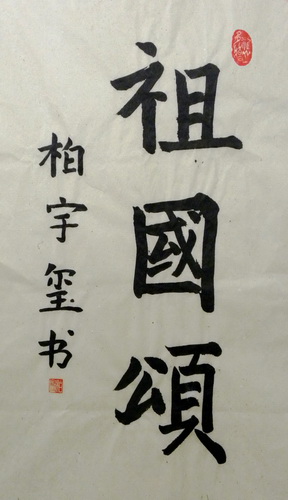 祖國頌
柏宇玺书